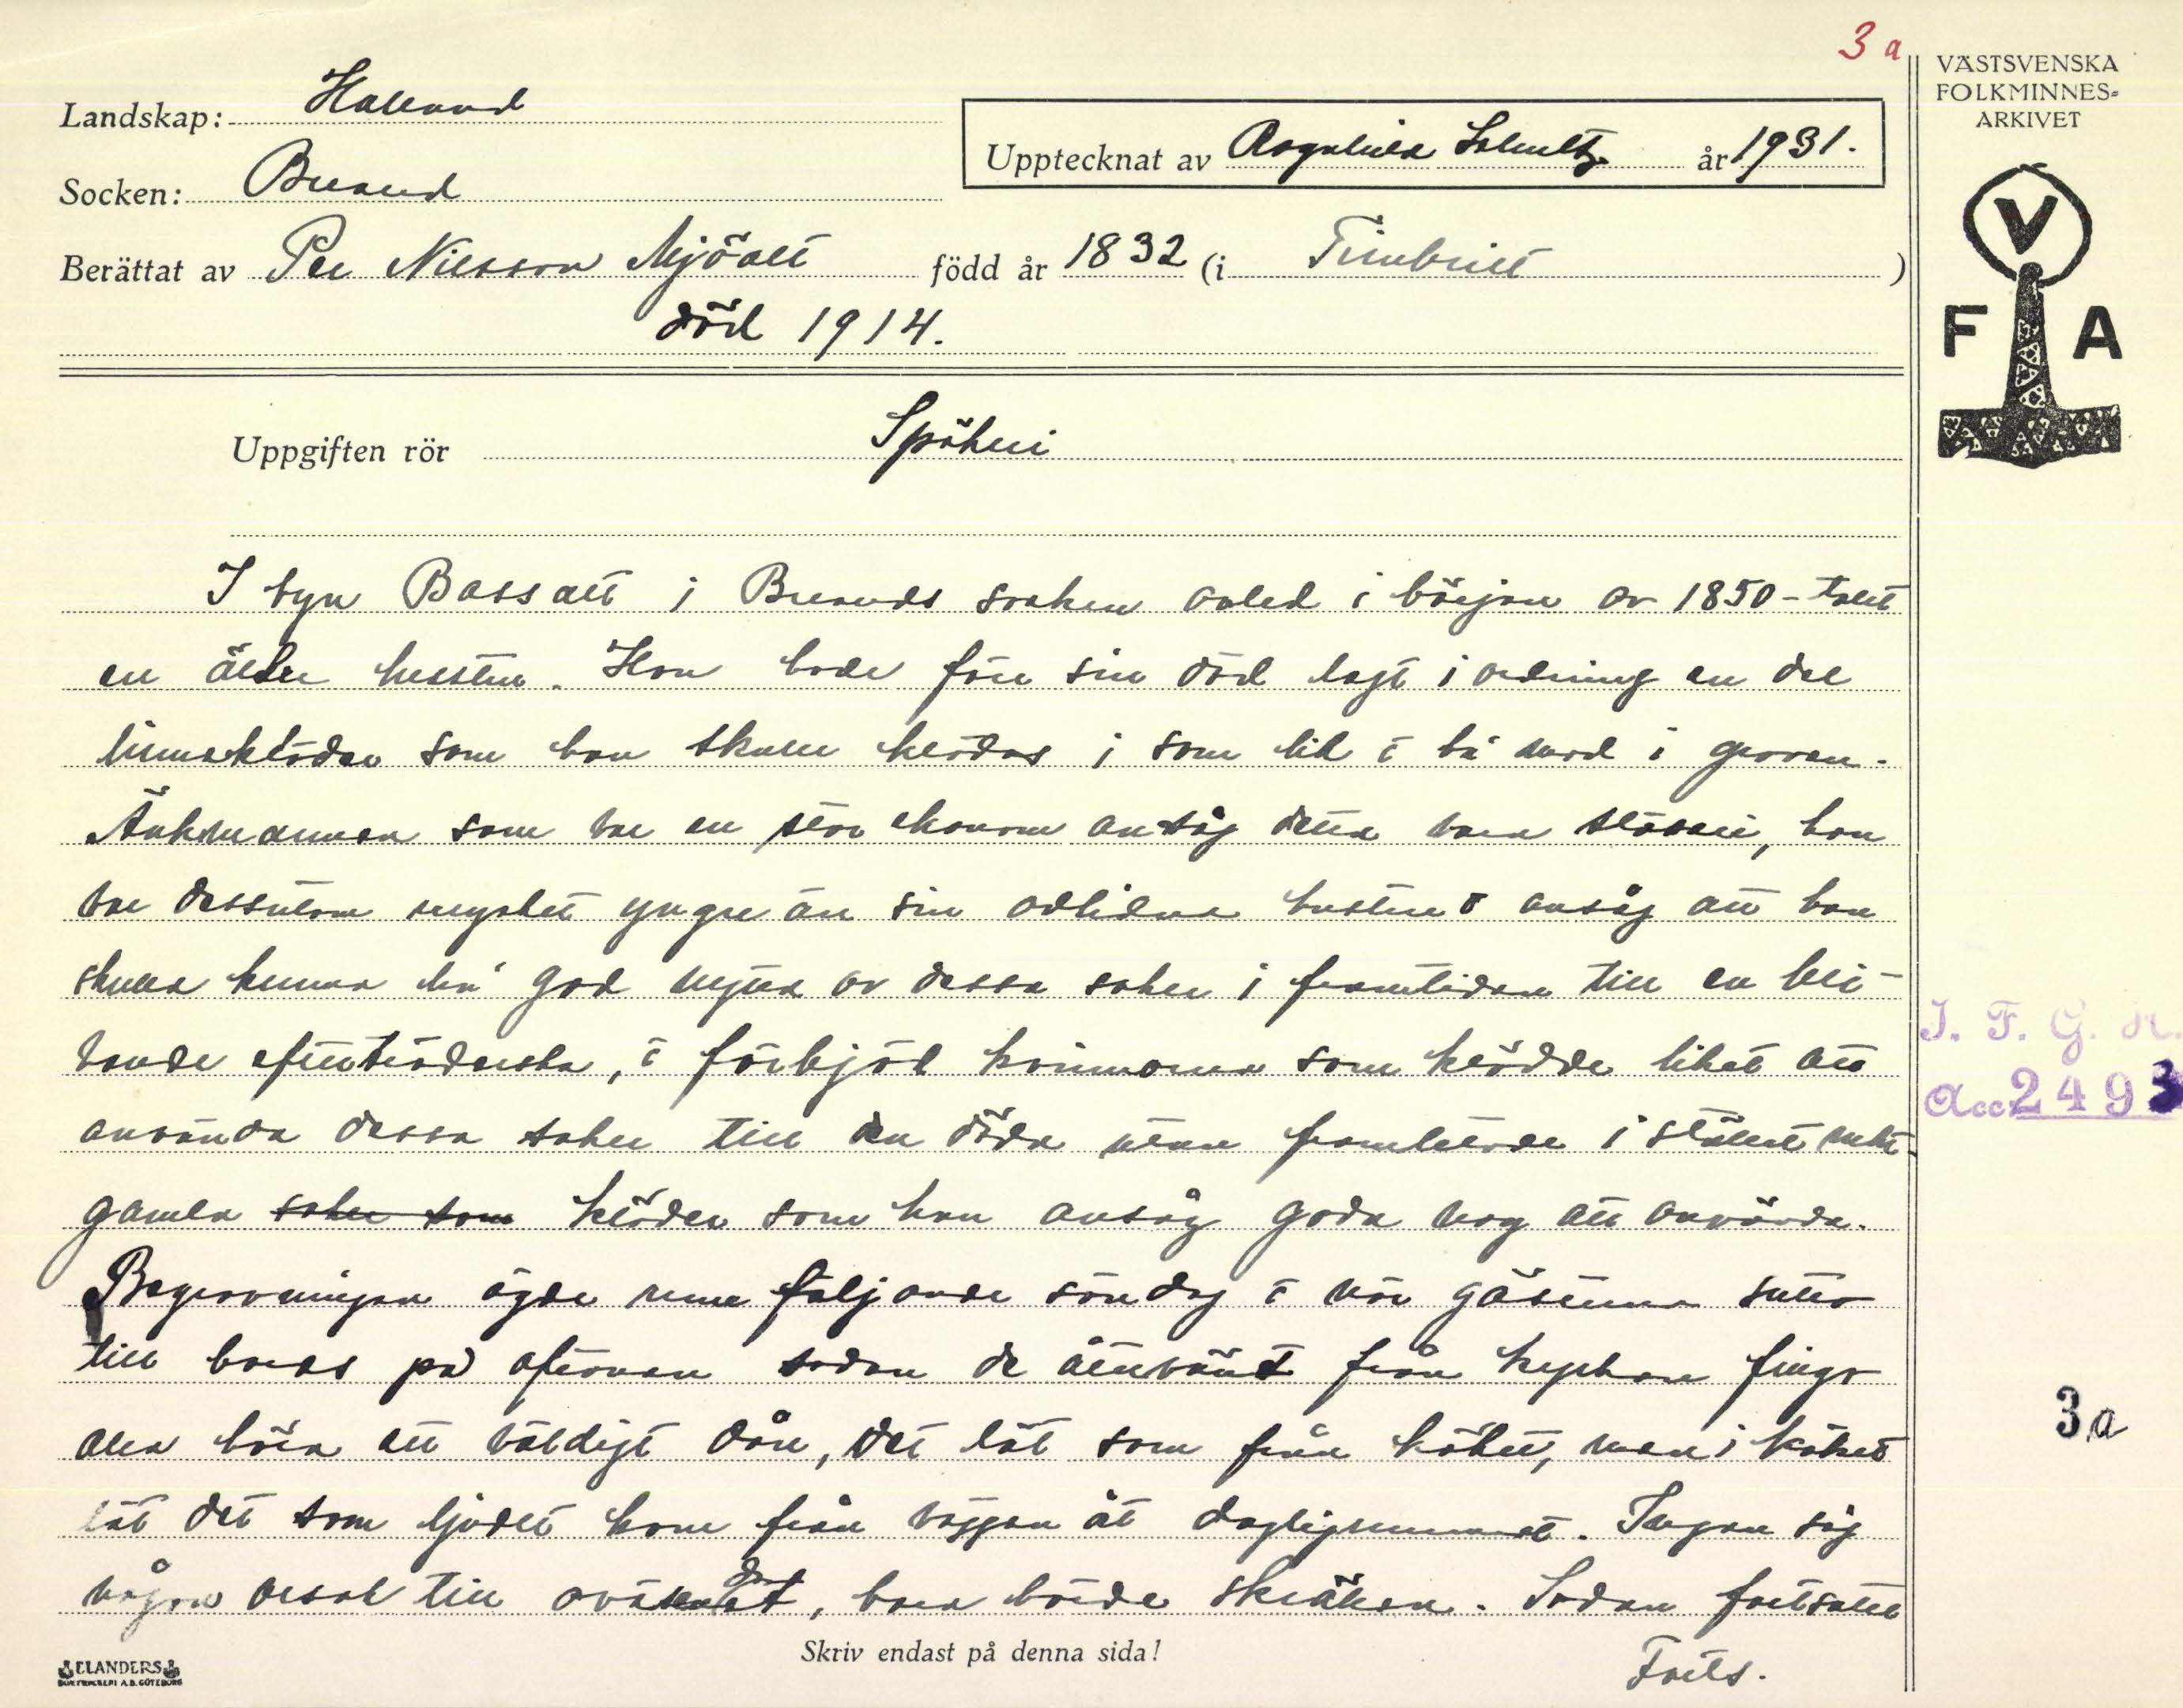 3 a
VÄSTSVENSKA
FOLKMINNES-
ARKIVET
Landskap: Halland
Upptecknat av Ragnhild Schultz år 1931.
Socken: Breared
Berättat av Per Nilsson Mjöalt född år 1832 (i Simlinge)
död 1914.
V
F A
Uppgiften rör Spökeri
I byn Bassalt i Breareds socken avled i början av 1850-talet
en äldre hustru. Hon hade före sin död lagt i ordning en del
linnekläder som hon skulle klädas i som lik o bli med i graven.
Änkemannen som var en stor ekonom ansåg detta vara slöseri, han
var dessutom mycket yngre än sin avlidna hustru o ansåg att han
skulle kunna ha' god nytta av dessa saker i framtiden till en bli-
vande efterträderska, o förbjöd kvinnorna som klädde liket att
använda dessa saker till den döda utan framletade i stället
gamla saker som kläder som han ansåg goda nog att använda.
Begravningen ägde rum följande söndag o när gästerna sutto
till bords på aftonen sedan de återvänt från kyrkan fingo
alla höra ett väldigt dån, det lät som från köket, men i köket
lät det som ljudet kom från väggen åt dagligrummet. Ingen såg
någon orsak till oväsendet, bara hörde skrällen. Sedan fortsatte
J. F. G. H.
Acc 2493
3a
Skriv endast på denna sida!
Forts.
ELANDERS
BOKTRYCKERI A.B. GÖTEBORG